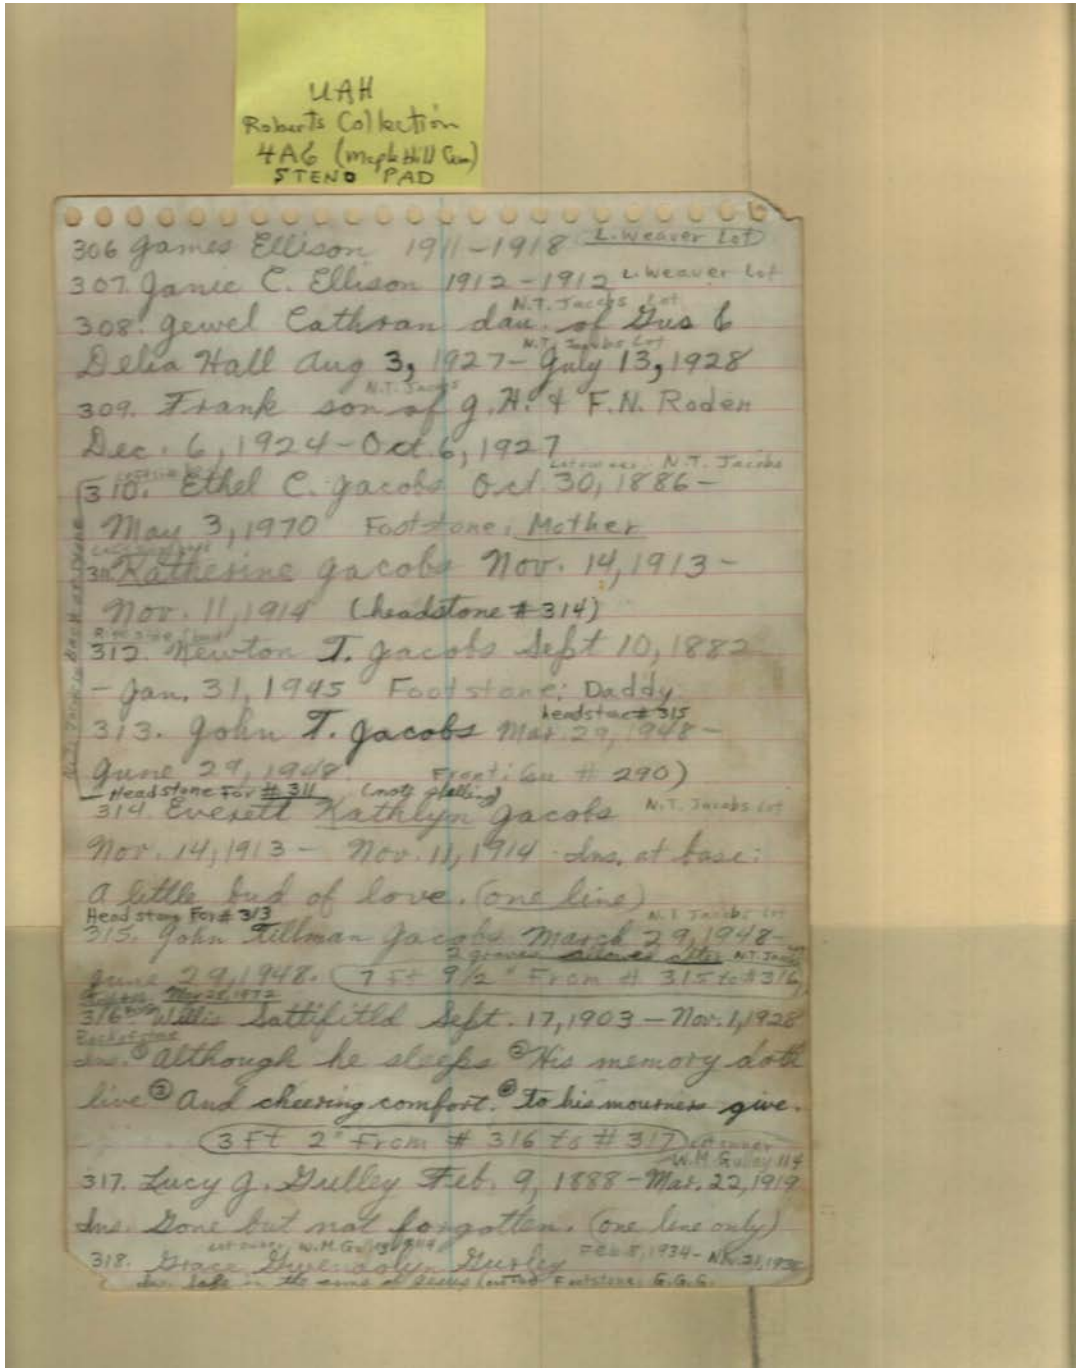 UAH
Roberts Collection
4A6 (Maple Hill Cem)
STENO PAD
306 James Ellison 1911-1918 L. Weaver Lot
307. Janie C. Ellison 1912-1912 L. Weaver Lot
N.T. Jacobs Lot
308. Jewel Cathran dau. of Gus &
N.T. Jacobs Lot
Delia Hall Aug 3, 1927- July 13, 1928
N.T. Jacobs
309. Frank son of J.H. & F.N. Roden
Dec. 6, 1924-Oct. 6, 1927
Lot owner: N.T. Jacobs
310. Ethel C. Jacobs Oct. 30, 1886-
May 3, 1970 Footstone: Mother
311. Katherine Jacobs Nov. 14, 1913-
Nov. 11, 1914 (headstone # 314)
312. Newton T. Jacobs Sept 10, 1882
- Jan. 31, 1945 Footstone: Daddy
headstone # 315
313. John T. Jacobs Mar. 29, 1948-
June 29, 1948. Front: # 290)
Headstone For # 311 (note spelling)
314. Everett Kathlyn Jacobs N.T. Jacobs Lot
Nov. 14, 1913- Nov. 11, 1914 Ins. at base:
A little bud of love. (one line)
Head stone For # 313 N.T. Jacobs Lot
315. John Tillman Jacobs March 29, 1948-
2 graves N.T. Jacobs
June 29, 1948. 7 Ft 9 1/2" From # 315 to # 316
May 28, 1972
316 Willis Sattifitld Sept. 17, 1903-Nov. 1, 1928
Ins. ① Although he sleeps ② His memory doth
live ③ And cheering comfort. ④ To his mourners give.
3 Ft 2" From # 316 to # 317 Lot owner
W.M. Gulley 114
317. Lucy J. Gulley Feb. 9, 1888-Mar. 22, 1919
Ins. Gone but not forgotten. (one line only)
Lot owner W.M.
318. Grace Gwendolyn Gurley Feb 8, 1934- Nov. 21, 1936
Ins. Safe in the arms of Jesus Footstone: G.G.G.